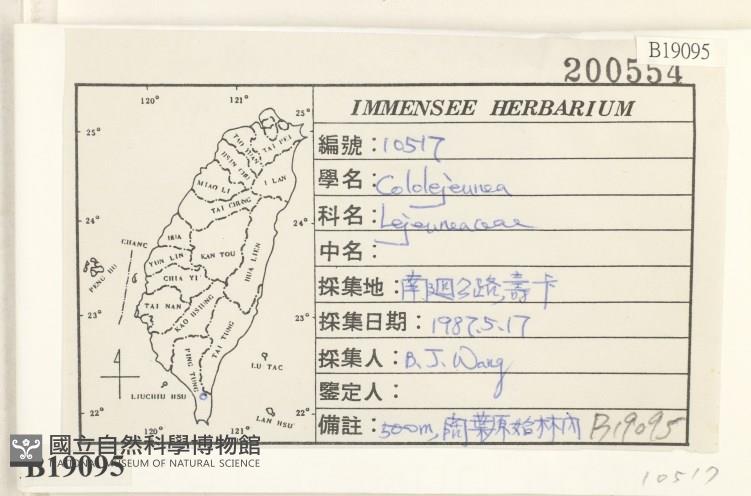 B19095
200554
120° 121°
25° 25°
24° 24°
23° 23°
22° 22°
120° 121°
TAI PEI
I LAN
MIAO LI
TAI CHUNG
CHANG
HUA
YUN LIN
NAN TOU
HUA LIEN
PENG HU
CHIA YI
TAI NAN
KAO HSIUNG
TAI TUNG
PING TUNG
LU TAO
LIUCHIU HSU
LAN HSU
IMMENSEE HERBARIUM
編號：10517
學名：Cololejeunea
科名：Lejeuneaceae
中名：
採集地：南迴公路,壽卡
採集日期：1987.5.17
採集人：B.J. Wang
鑒定人：
備註：500m,闊葉原始林內 B19095
國立自然科學博物館
NATIONAL MUSEUM OF NATURAL SCIENCE
B19095
10517